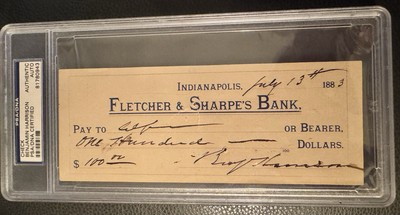 PSA/DNA
CHECK AUTHENTIC
BENJAMIN HARRISON AUTO
PSA/DNA CERTIFIED 81780943
Indianapolis, July 13th 1883
Fletcher & Sharpe's Bank,
Pay to or Bearer,
One Hundred Dollars.
$ 100 00 Benj Harrison